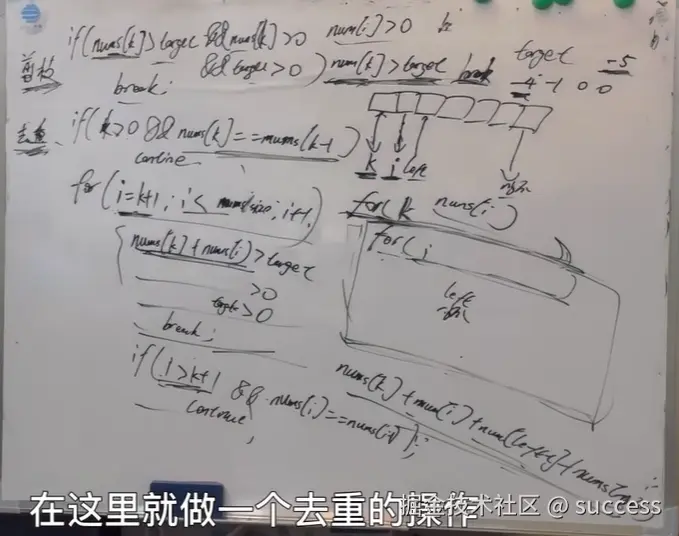 if(nums[k]>target && nums[k]>0 nums[i]>0
剪枝 && target>0) nums[k]>target break
break;
target -5
-4 -1 0 0
去重 if(k>0 && nums[k]==nums[k-1)
contine
k i left
right
for(i=k+1; i< nums.size; i++,
for(k nums[i])
for(i
left
right
nums[k]+nums[i]>target
>0
target>0
break;
if(i>k+1 && nums[i]==nums[i-1]);
continue;
nums[k]+nums[i]+nums[left]+nums[right]
在这里就做一个去重的操作
掘金技术社区 @ success